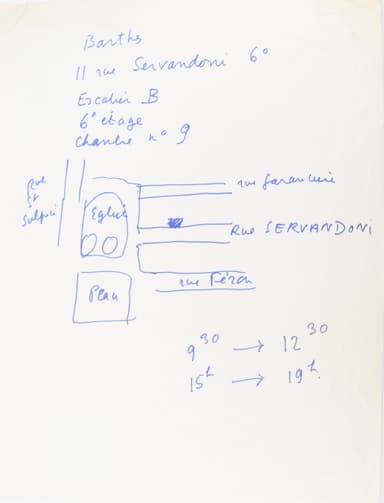 Barthes
11 rue Servandoni 6°
Escalier B
6° étage
Chambre n° 9
Rue
St
Sulpice
Eglise
rue Garancière
Rue SERVANDONI
rue Férou
9 30 → 12 30
15 h → 19 h.